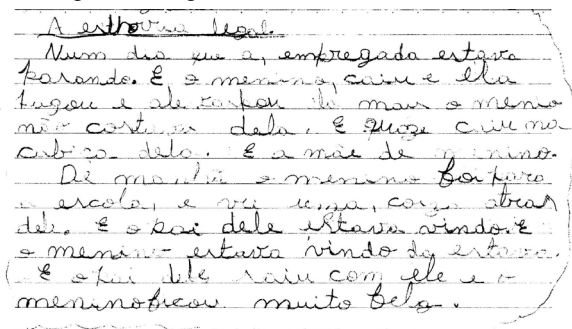 A esthoria legal
Num dia que a, empregada estava
parando. E o menino, caiu e ela
pugou e ale da mau o menio
não costava dela. E quoze caiu na
cabiça dela. E a mãe de menino.
De manhã o menino foi para
a escola, e viu uma, coiza atras
dele. E o pai dele estava vindo. E
o menino estava vindo da estava.
E o pai dele saiu com ele e o
menino ficou muito belo.